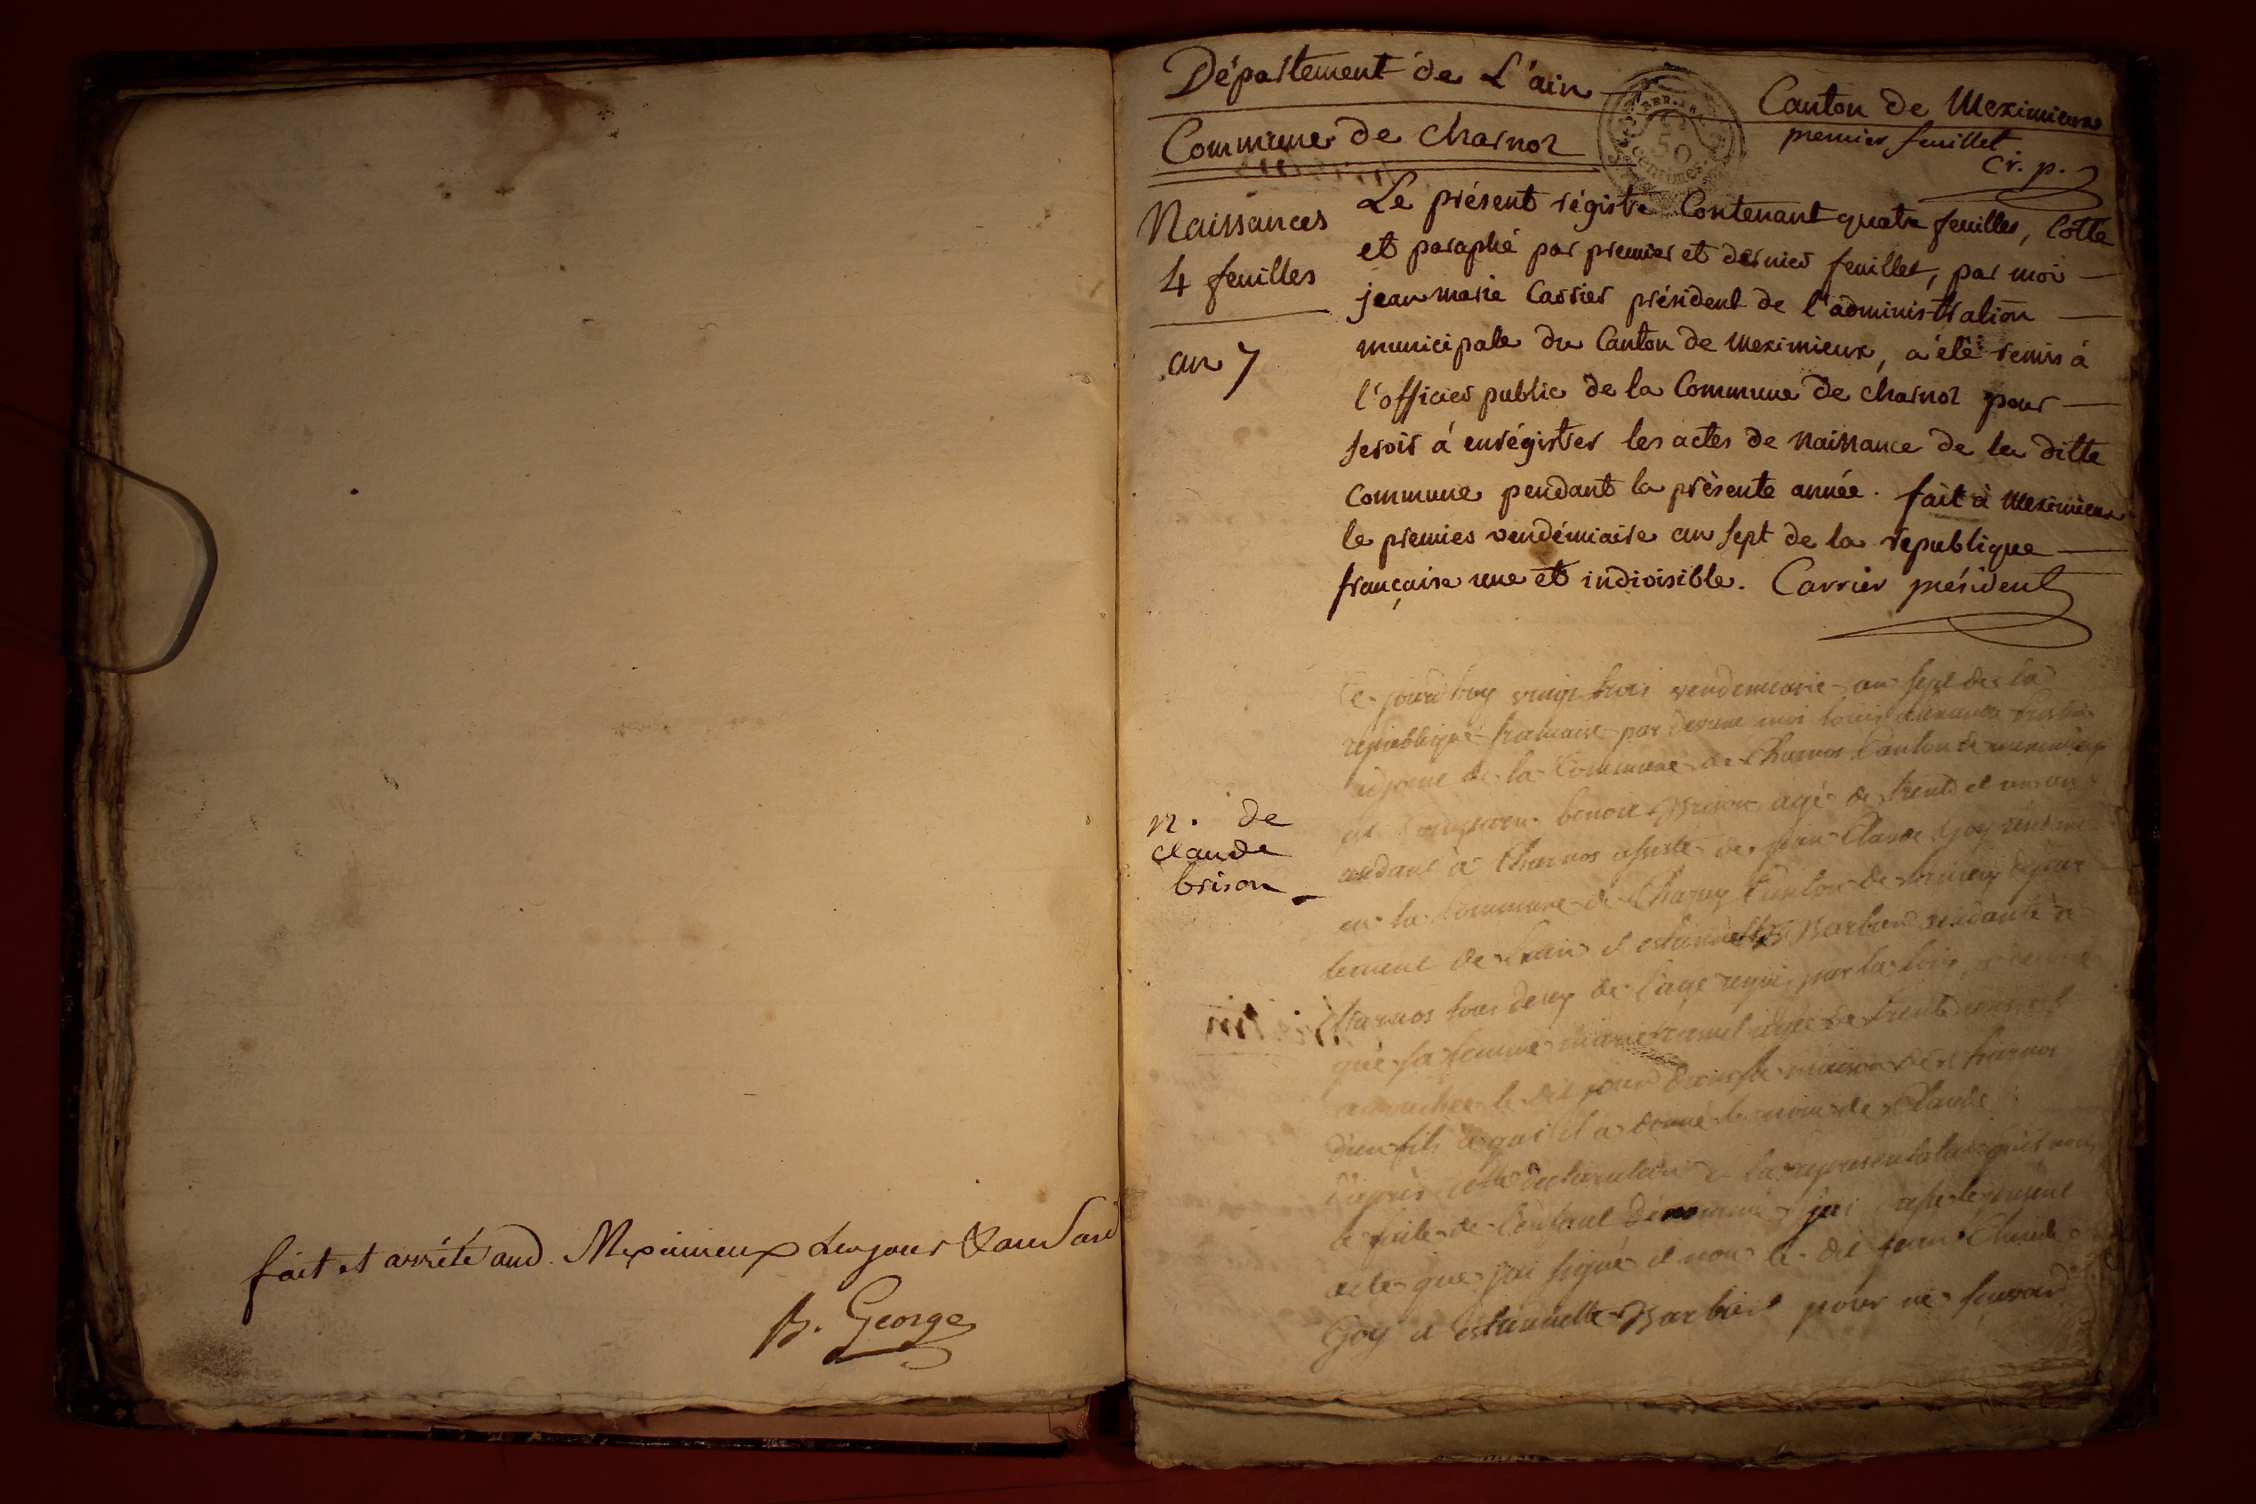 fait et arrêté aud. Meximieux les jour & an Susd
B. George
Département de L'ain
Canton de Meximieux
premier feuillet
Cr. p.
Commune de charnoz
50
centimes
Naissances
4 feuilles
an 7
Le présent régistre Contenant quatre feuilles, Cotté
et paraphé par premier et dernier feuillet, par moi
jean marie Carrier président de l'administration
municipale du Canton de Meximieux, a été remis à
l'officier public de la Commune de charnoz pour
servir à enrégistrer les actes de Naissance de la ditte
Commune pendant la présente année. fait à Meximieux
le premier vendémiaire an sept de la république
française une et indivisible. Carrier président
n. de
claude
brison
Ce jourd'huy vingt trois vendemiaire an sept de la
republique francaise par devant moi louis
adjoint de la Commune de Charnos Canton de meximieux
benoit Brison agé de trente et un ans
residant à Charnos assisté de jean Claude Goy residant
en la Commune de Charnoz Canton de
tement de lain et estiennette Barbier residante à
Charnos tous deux de l'age requis par la loix
que sa femme marie agée de trente
accouchée le dit jour dans sa maison de Charnos
d'un fils a qui il a donné le nom de Claude
D'apres cette declaration et la representation qui
te faite de l'enfant dénommé j'ai
acte que j'ai signé et non le dit jean Claude
Goy et estiennette Barbier pour ne savoir